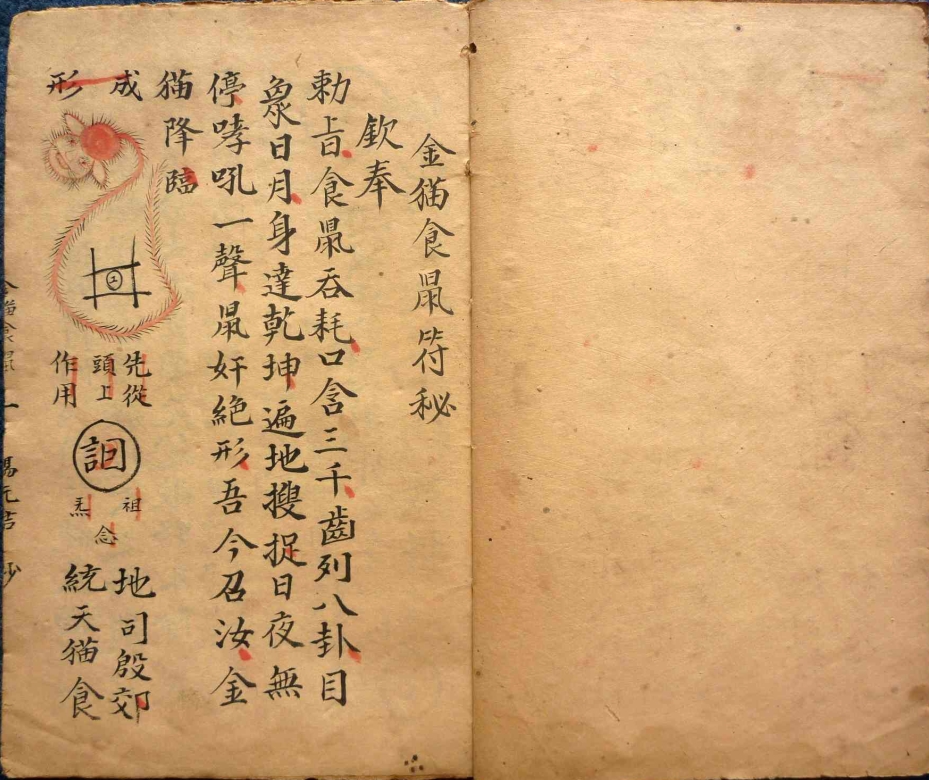 金猫食鼠符秘
欽奉
勅旨食鼠吞耗口含三千齒列八卦目
象日月身達乾坤遍地搜捉日夜無
停哮吼一聲鼠奸絕形吾今召汝金
猫降臨
成
形
先從
頭上
作用
祖
炁
念
地司殷郊
統天猫食